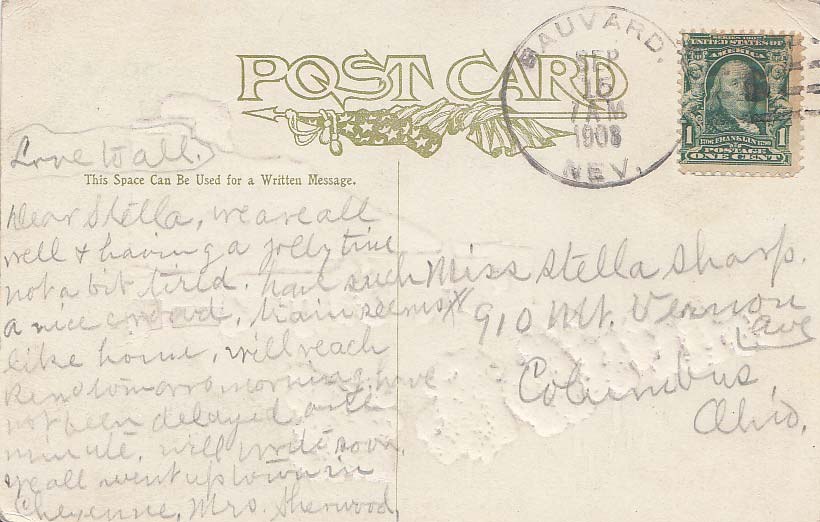 POST CARD
BAUVARD,
SEP
15
7 AM
1908
NEV.
SERIES 1902
UNITED STATES OF
AMERICA
1 1706 FRANKLIN 1790 1
POSTAGE
ONE CENT
Love to all.
This Space Can Be Used for a Written Message.
Dear Stella, we are all
well & having a jolly time
not a bit tired. have such
a nice crowd, train seems
like home, will reach
Reno tomorro morning, have
not been delayed one
minute. will write soon.
We all went up town in
Cheyenne, Mrs. Sherwood,
Miss Stella Sharp.
910 Mt. Vernon
Ave
Columbus,
Ohio.